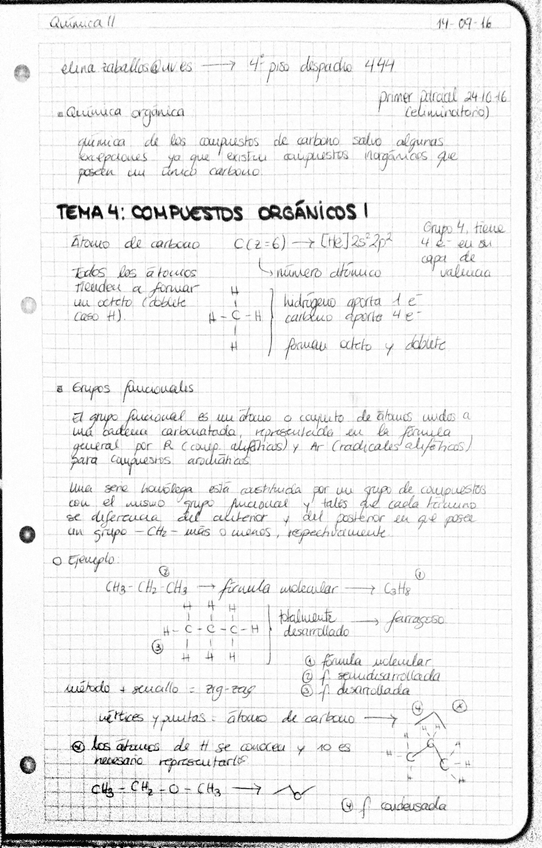 Química II 14-09-16
elena.zaballos@uv.es → 4º piso despacho 444
primer parcial 24.10.16
(eliminatorio)
Química orgánica
química de los compuestos de carbono salvo algunas
excepciones ya que existen compuestos inorgánicos que
poseen un único carbono.
TEMA 4: COMPUESTOS ORGÁNICOS I
Átomo de carbono C(z=6) → [He]2s²2p²
Grupo 4, tiene
4 e⁻ en su
capa de
valencia
número atómico
Todos los átomos
tienden a formar
un octeto (doblete
caso H).
H
H - C - H
H
hidrógeno aporta 1 e⁻
carbono aporta 4 e⁻
forman octeto y doblete
Grupos funcionales
El grupo funcional es un átomo o conjunto de átomos unidos a
una cadena carbonatada, representada en la fórmula
general por R (comp. alifáticos) y Ar (radicales alifáticos)
para compuestos aromáticos.
Una serie homóloga está constituida por un grupo de compuestos
con el mismo grupo funcional y tales que cada término
se diferencia del anterior y del posterior en que posee
un grupo -CH₂- más o menos, respectivamente.
Ejemplo:
② ①
CH₃-CH₂-CH₃ → fórmula molecular → C₃H₈
H H H
H - C - C - C - H
H H H
③
totalmente
desarrollado → farragoso
① fórmula molecular
② f. semidesarrollada
③ f. desarrollada
método + sencillo = zig-zag
vértices y puntas = átomo de carbono →
④
los átomos de H se conocen y no es
necesario representarlos
CH₃ - CH₂ - O - CH₃ →
④ f condensada